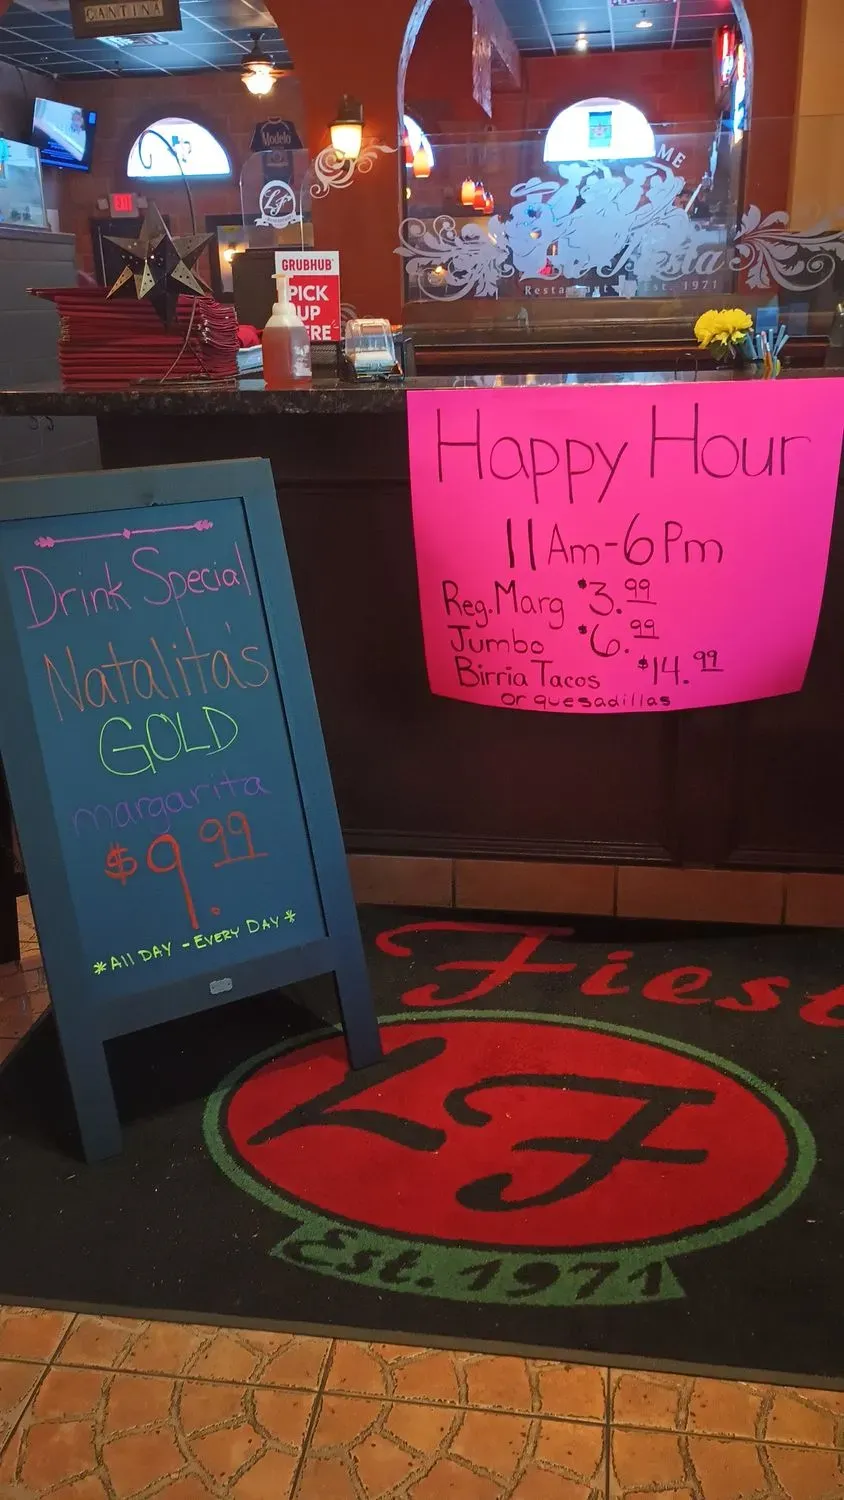 CANTINA
Modelo
EXIT
LF
GRUBHUB
PICK
UP
HERE
Fiesta
Restaurant Est. 1971
Happy Hour
11 Am - 6 Pm
Reg. Marg $3.99
Jumbo $6.99
Birria Tacos $14.99
or quesadillas
Drink Special
Natalita's
GOLD
margarita
$9.99
*All DAY - EVERY DAY*
Fiest
LF
Est. 1971